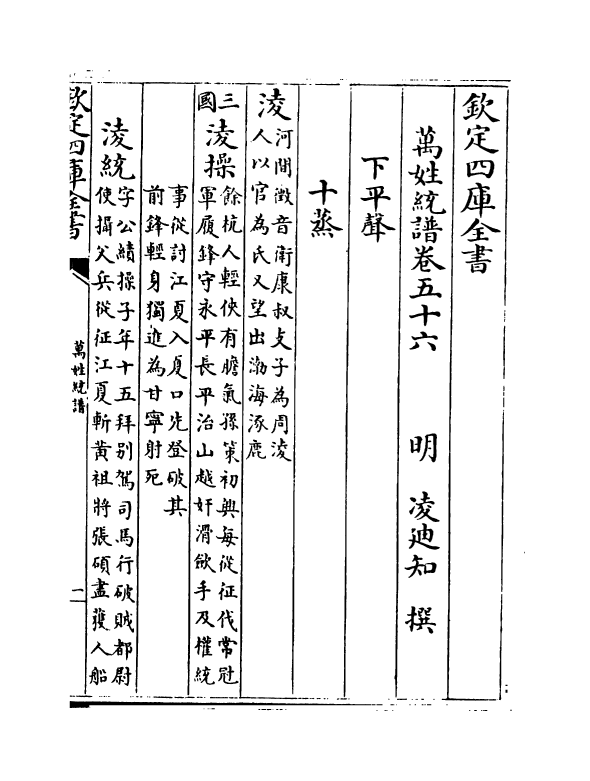 欽定四庫全書
萬姓統譜卷五十六　明　凌迪知　撰
下平聲
十蒸
凌
河間徵音衛康叔支子為周淩
人以官為氏又望出渤海涿鹿
三國
凌操
餘杭人輕俠有膽氣孫策初興每從征伐常冠
軍履鋒守永平長平治山越奸滑斂手及權統
事從討江夏入夏口先登破其
前鋒輕身獨進為甘寧射死
凌統
字公績操子年十五拜别駕司馬行破賊都尉
使攝父兵從征江夏斬黄祖將張碩盡獲人船
欽定四庫全書
萬姓統譜
一